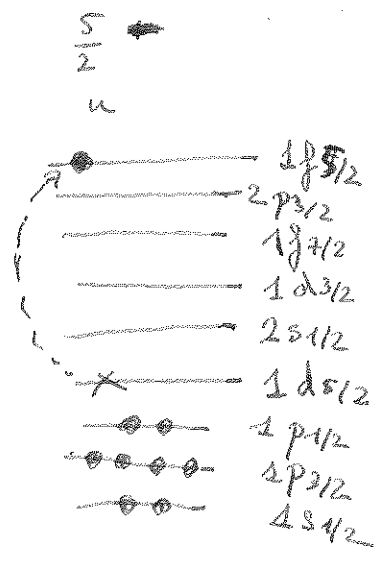 5
2
u
1f5/2
2p3/2
1f7/2
1d3/2
2s1/2
1d5/2
1p1/2
1p3/2
1s1/2